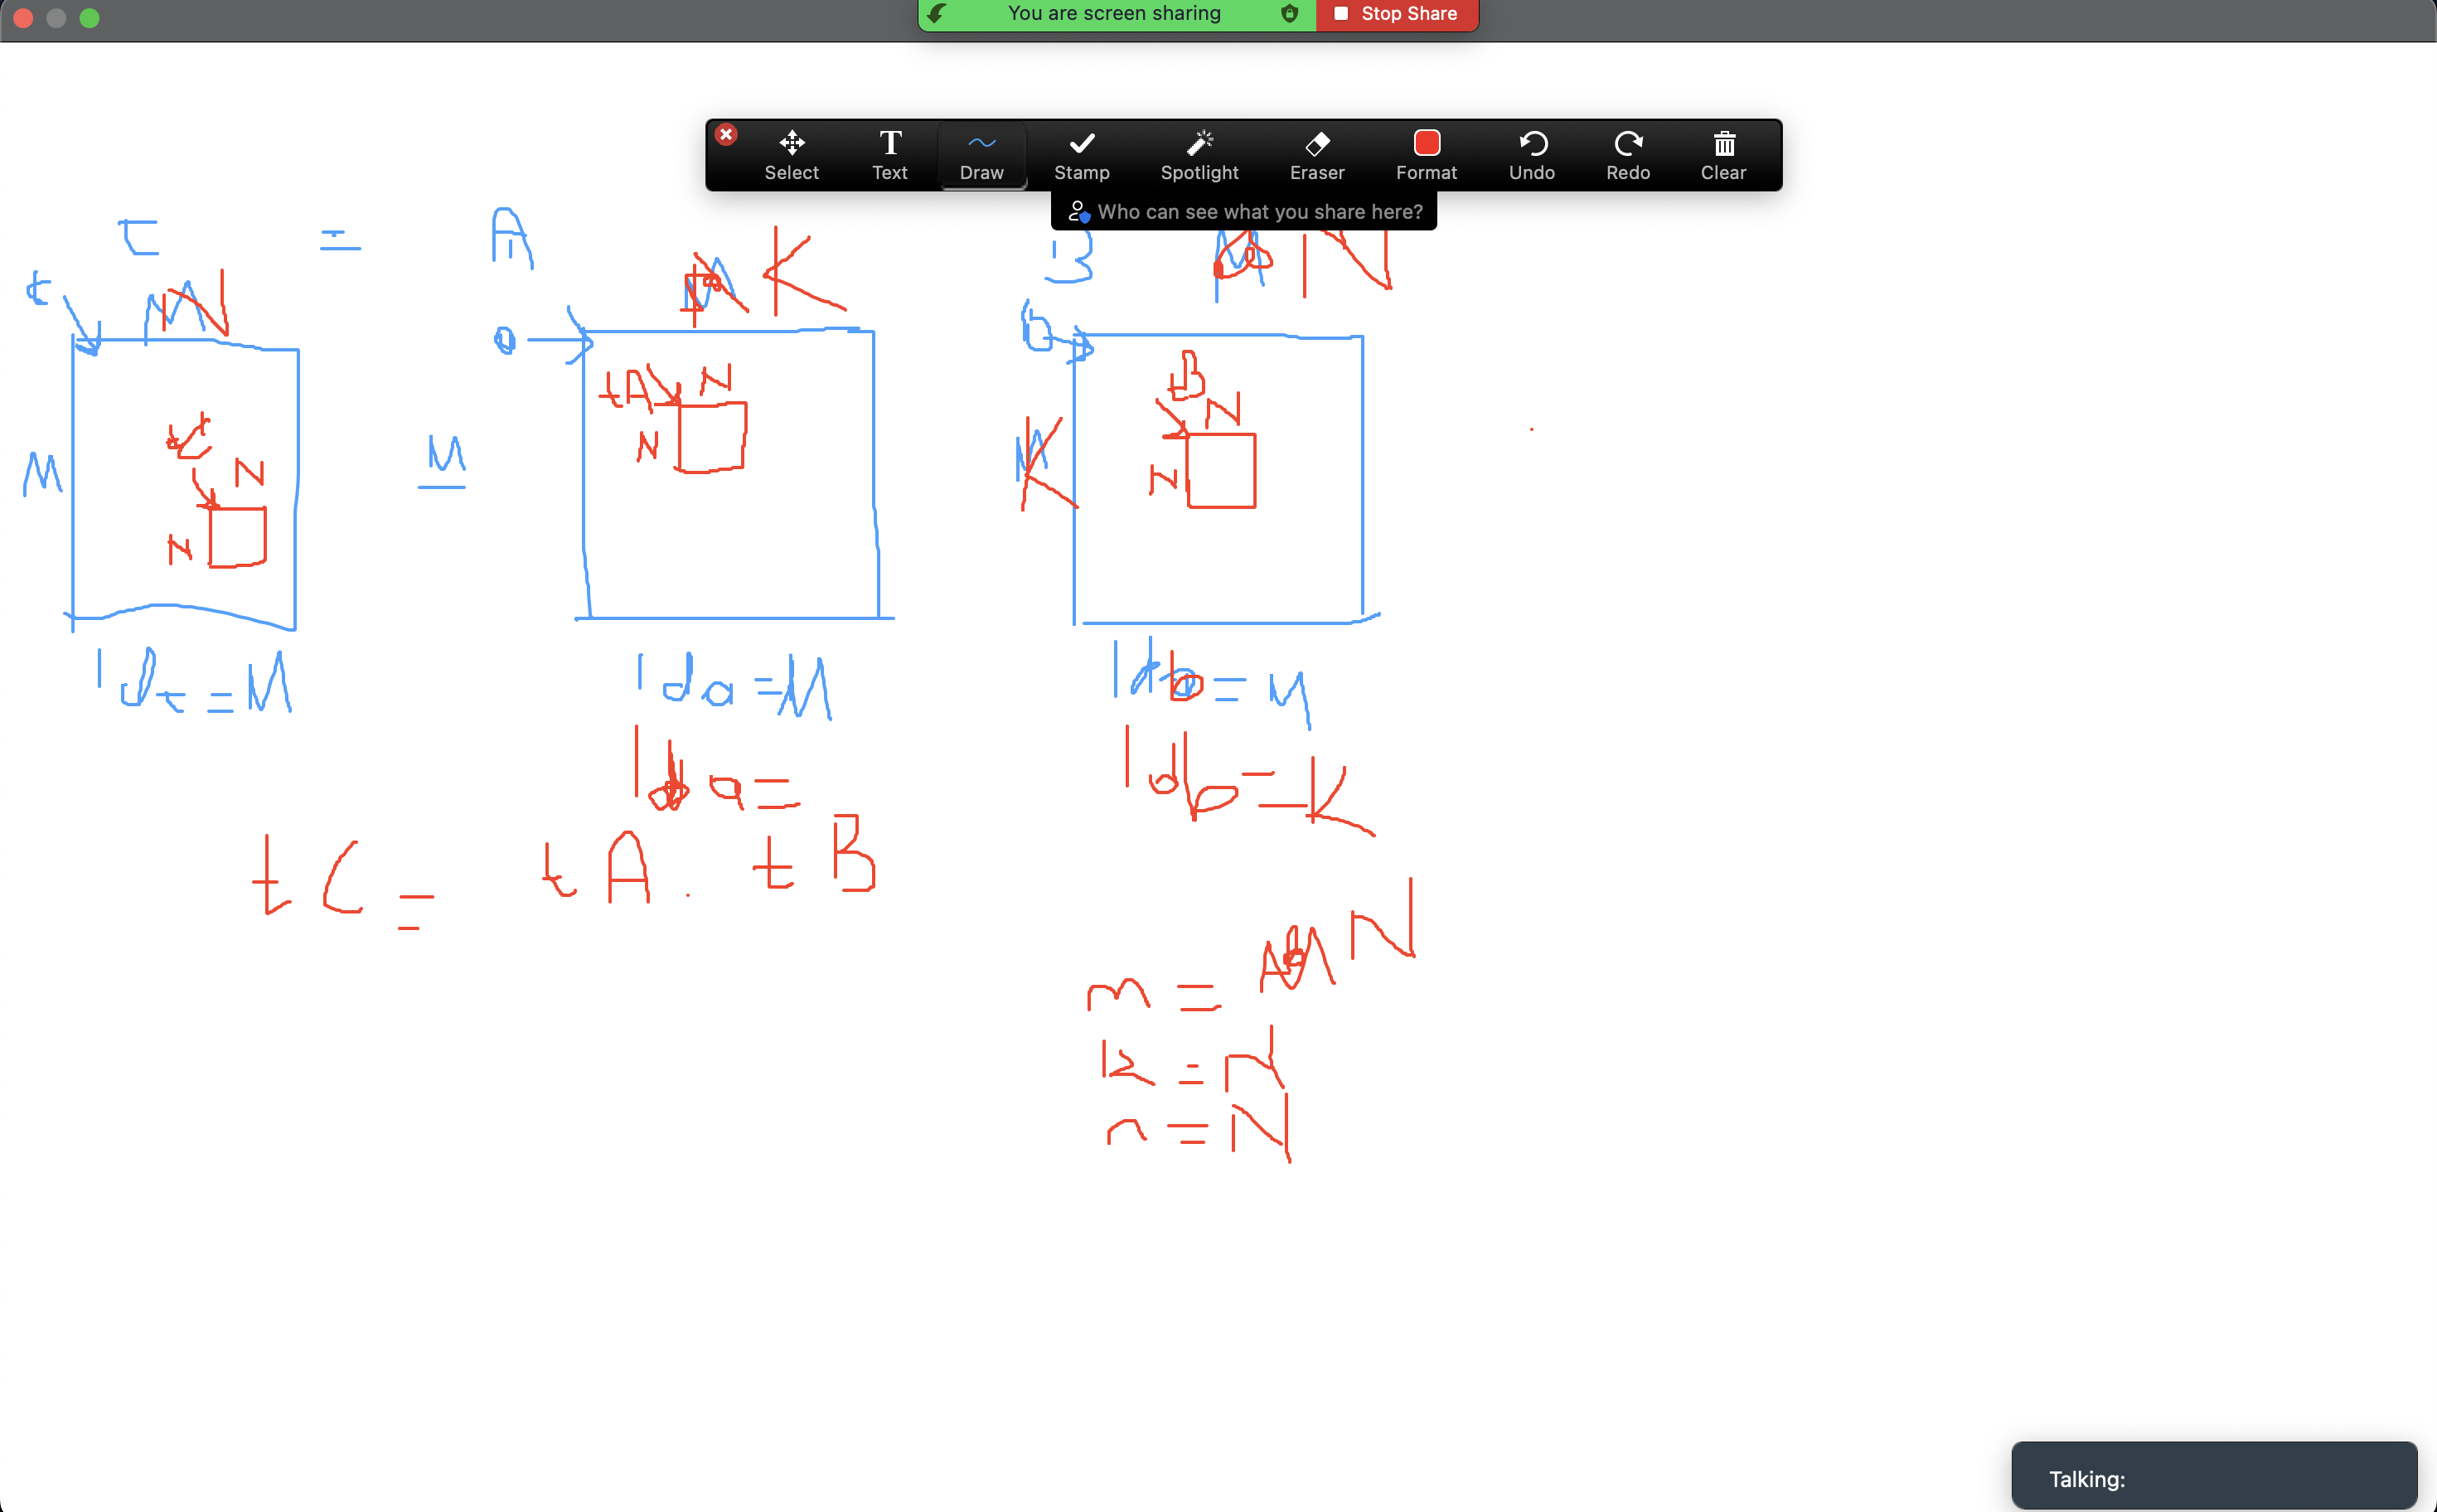 You are screen sharing Stop Share
Select Text Draw Stamp Spotlight Eraser Format Undo Redo Clear
Who can see what you share here?
C = A B
K N
c N
a b
tA N tB
N N
M M K
N N
N
ldc = M lda = M ldb = M
lda = ldb = K
tC = tA . tB
m = N
k = N
n = N
Talking: